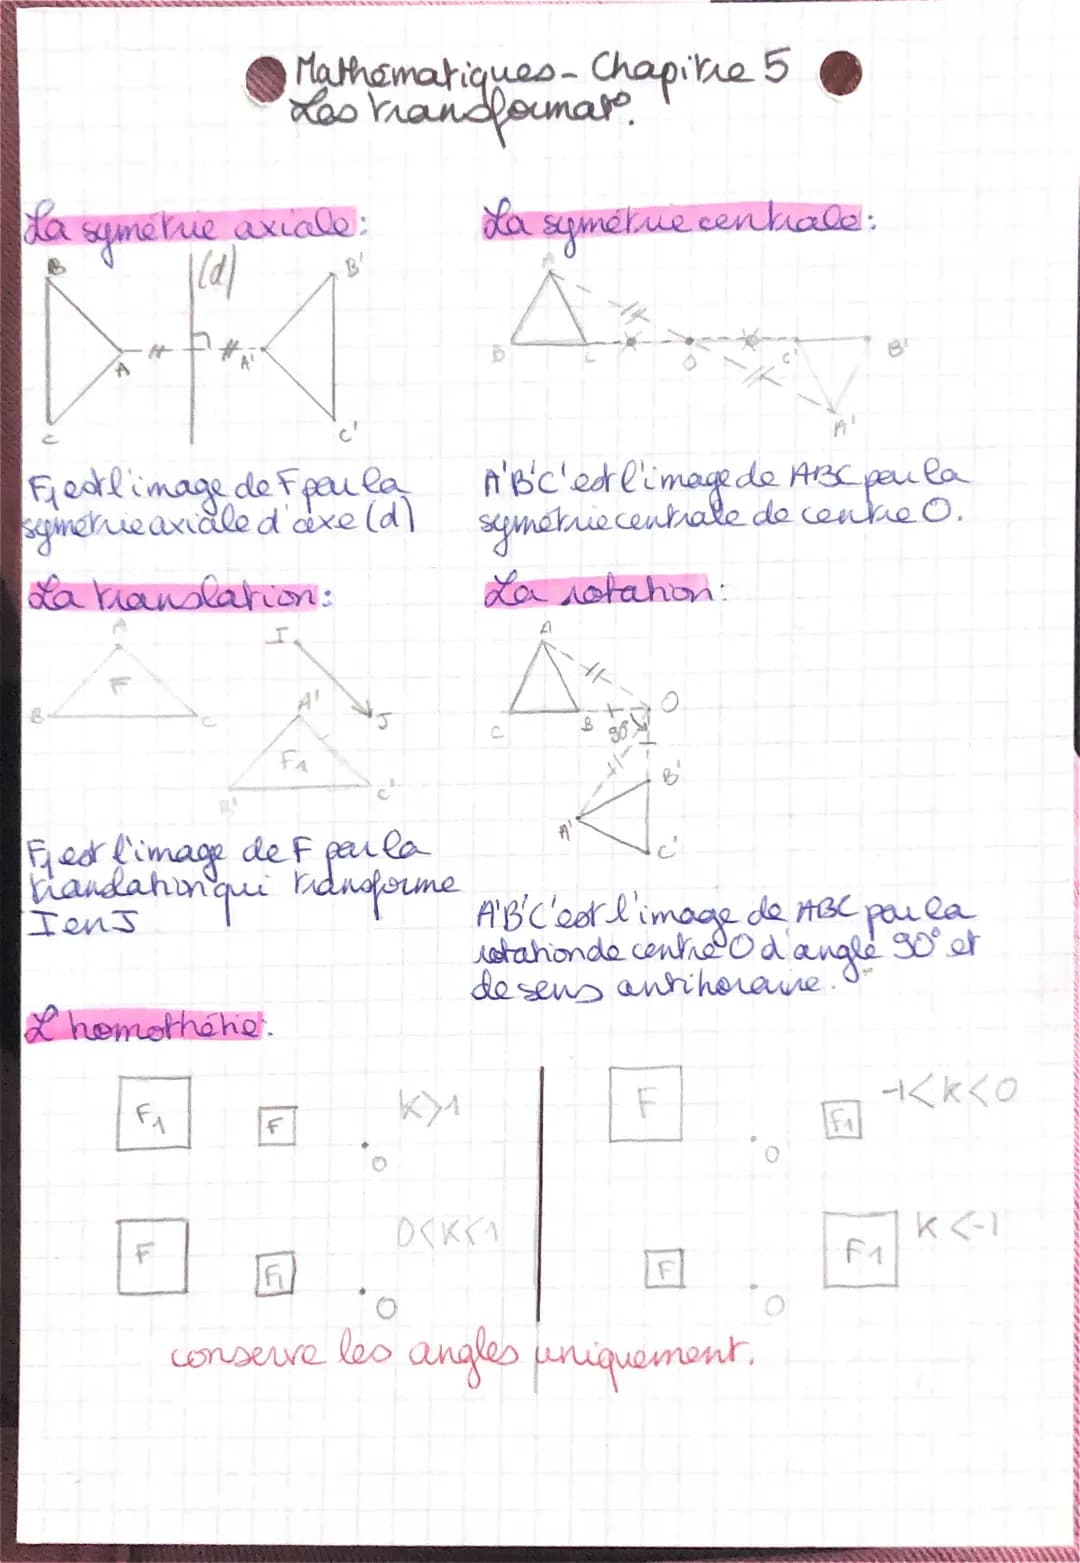 Mathématiques - Chapitre 5
Les transformat°.
La symétrie axiale:
B
(d)
B'
A
A'
C
C'
F1 est l'image de F par la
symétrie axiale d'axe (d)
La symétrie centrale:
A
B
C
O
C'
B'
A'
A'B'C' est l'image de ABC par la
symétrie centrale de centre O.
La translation:
A
I
F
A'
B
C
J
F1
B'
C'
F1 est l'image de F par la
translation qui transforme
I en J
La rotation:
A
O
C
B
90°
B'
A'
C'
A'B'C' est l'image de ABC par la
rotation de centre O d'angle 90° et
de sens antihoraire.
L'homothétie:
F1
F
O
k>1
F
F1
O
0<k<1
F
O
F1
-1<k<0
F
O
F1
k<-1
conserve les angles uniquement.